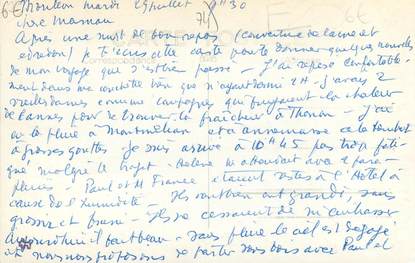 mardi 29 juillet 8H30
chère maman
Après une nuit de bon repos (couverture de laine et
édredon) je t'écris cette carte pour te donner quelques nouvelles
de mon voyage que s'est bien passé - J'ai reposé confortable-
ment dans ma couchette bien que n'ayant dormi 2H - j'avais 2
vieilles dames comme compagnes qui fuyaient la chaleur
de Cannes pour se trouver la fraîcheur à Thonon - J'ai
eu la pluie à Montmélian et à Annemasse cela tombait
à grosses gouttes Je suis arrivé à 10H45 pas trop fati-
gué malgré le trajet - Hélène m'attendait avec 2 para-
pluies - Paul et M France étaient restés à l'Hôtel à
cause de l'humidité - Ils ont bien grandi, sans
grossir et bruni - Ils ne cessaient de m'embrasser
Aujourd'hui il fait beau - sans pluie le ciel est dégagé
et nous nous proposons de partir sous bois avec Paul et